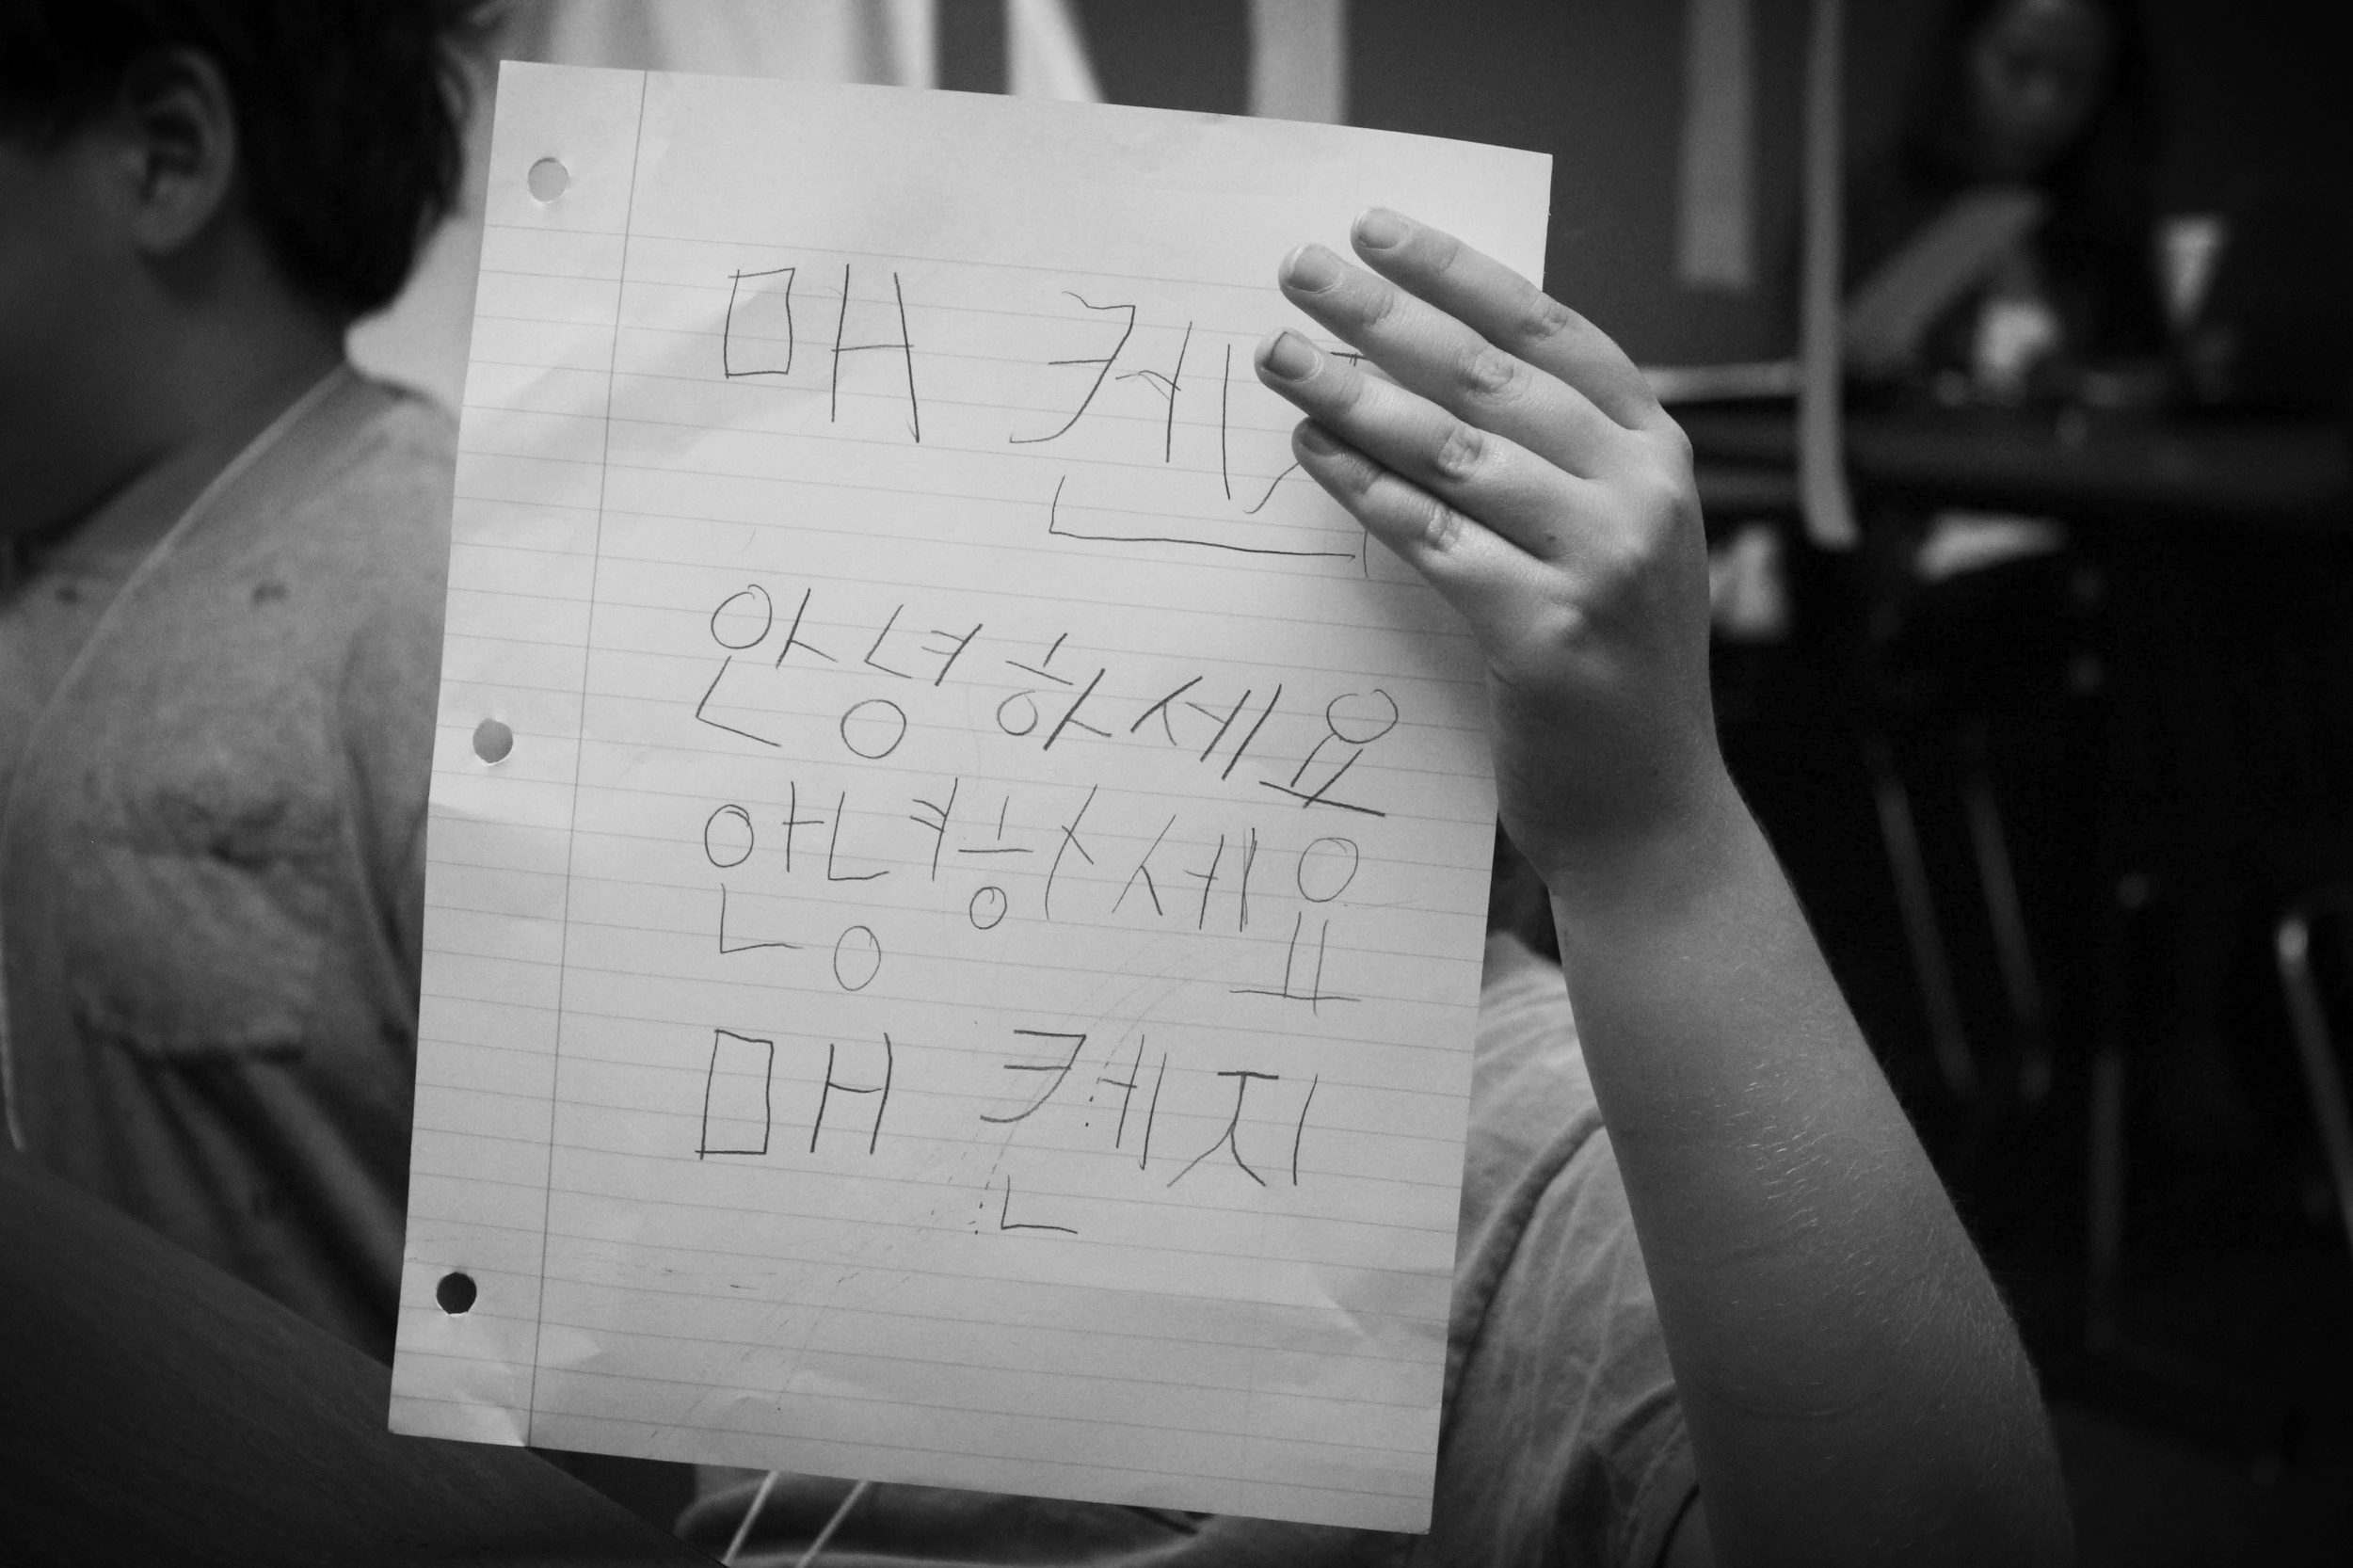 매 켄
안녕하세요
안녕하세요
매 켄지